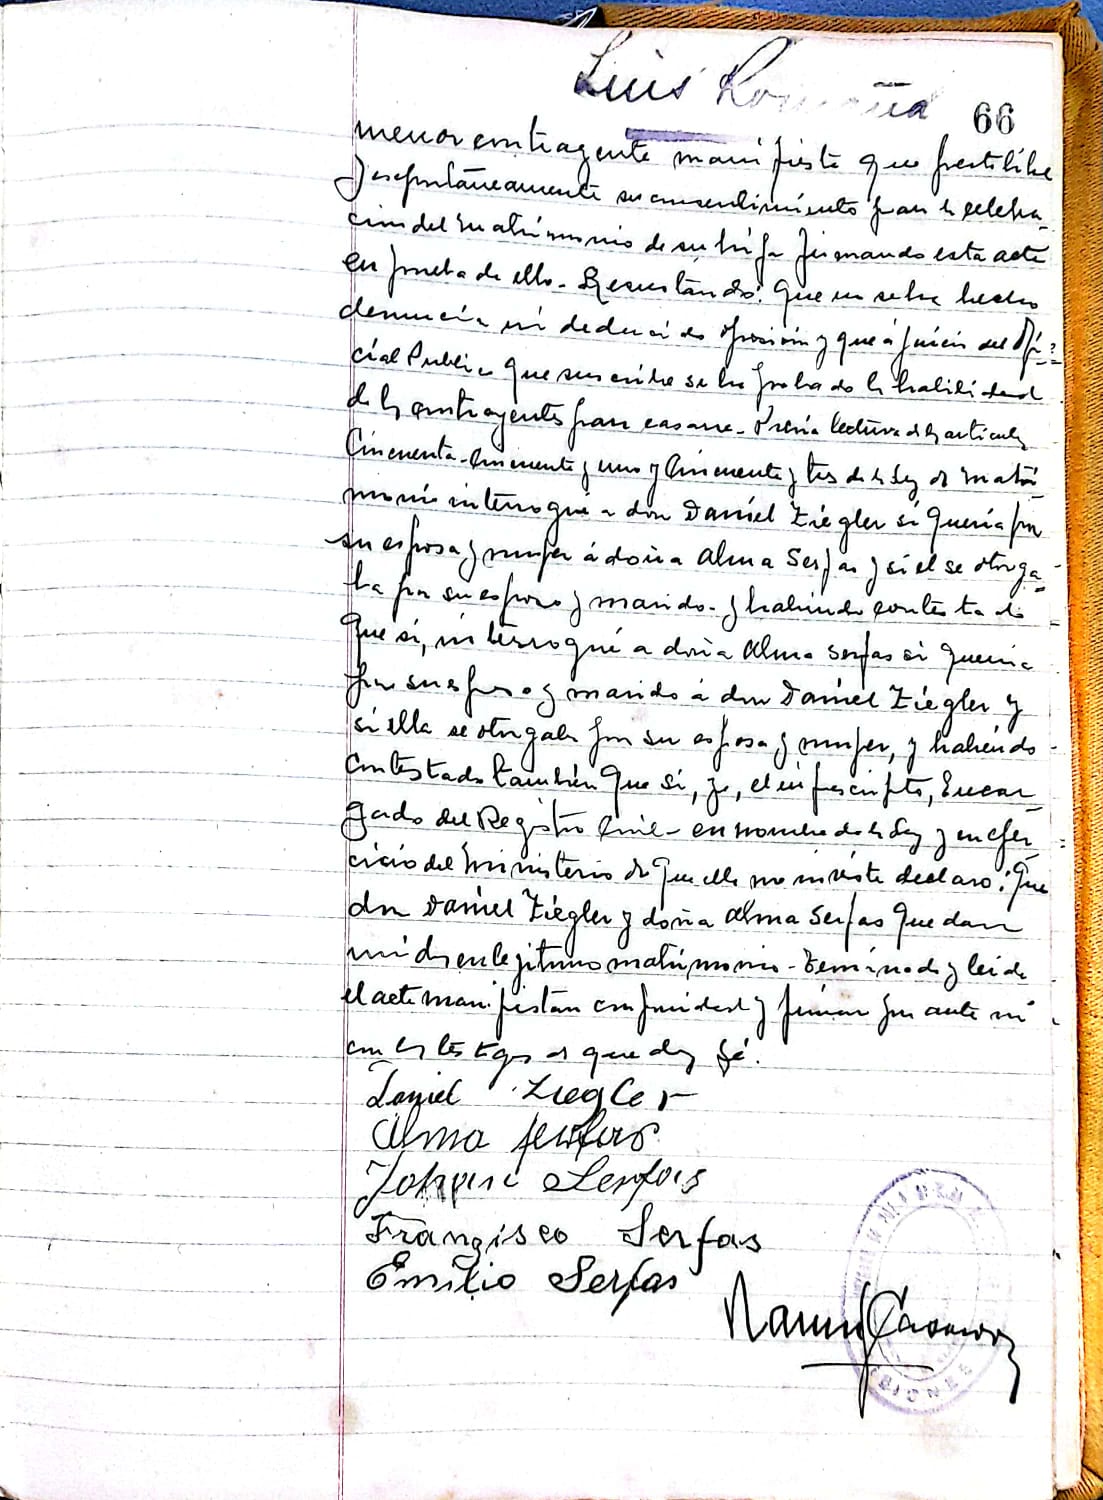 Luis Romaña
66
menor contragente manifiesta que presta libre
y espontáneamente su consentimiento para la celebra-
cion del matrimonio de su hija firmando esta acta
en prueba de ello. Resultando: Que no se ha hecho
denuncia ni deducido oposición y que á juicio del Ofi=
cial Publico que suscribe se ha probado la habilidad
de los contrayentes para casarse. Previa lectura de los articulos
Cincuenta. Cincuenta y uno y Cincuenta y tres de la Ley de Matri
monio interrogué a don Daniel Ziegler si queria por
su esposa y mujer á doña Alma Serfas y si el se otorga-
ba por su esposo y marido. y habiendo contestado
Que si, interrogué a doña Alma Serfas si queria
por su esposo y marido á don Daniel Ziegler y
si ella se otorgaba por su esposa y mujer, y habiendo
contestado también Que si, yo, el infrascripto, Encar
gado del Registro Civil en nombre de la Ley y en ejer
cicio del ministerio de que ella me inviste declaro: Que
don Daniel Ziegler y doña Alma Serfas quedan
unidos en legitimo matrimonio. Terminada y leida
el acta manifiestan conformidad y firman por ante mi
con los testigos de que doy fé.
Daniel Ziegler
Alma Serfas
Serfas
Francisco Serfas
Emilio Serfas